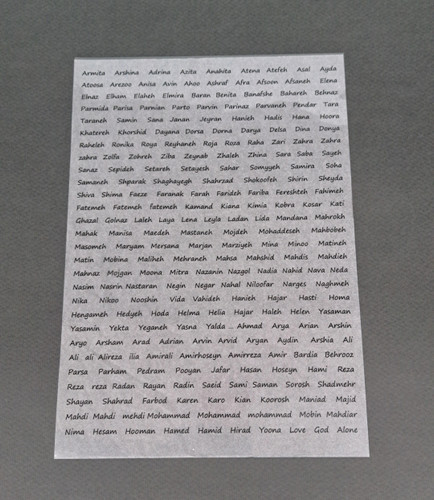 Armita Arshina Adrina Azita Anahita Atena Atefeh Asal Ayda
Atoosa Arezoo Anisa Arin Ahoo Ashraf Afra Afsoon Afsaneh Elena
Elnaz Elham Elaheh Elmira Baran Benita Banafshe Bahareh Behnaz
Parmida Parisa Parmian Parto Parvin Parinaz Parvaneh Pendar Tara
Taraneh Samin Sana Janan Jeyran Hanieh Hadis Hana Hoora
Khatereh Khorshid Dayana Dorsa Dorna Darya Delsa Dina Donya
Raheleh Ronika Roya Reyhaneh Roja Roza Raha Zari Zahra Zahra
zahra Zolfa Zohreh Ziba Zeynab Zhaleh Zhina Sara Saba Sayeh
Sanaz Sepideh Setareh Setayesh Sahar Somyyeh Samira Soha
Samaneh Shparak Shaghayegh Shahrzad Shokoofeh Shirin Sheyda
Shiva Shima Faeze Faranak Farah Farideh Fariba Fereshteh Fahimeh
Fatemeh Fatemeh fatemeh Kamand Kiana Kimia Kobra Kosar Kati
Ghazal Golnaz Laleh Laya Lena Leyla Ladan Lida Mandana Mahrokh
Mahak Manisa Maedeh Mastaneh Mojdeh Mohaddeseh Mahbobeh
Masomeh Maryam Mersana Marjan Marziyeh Mina Minoo Matineh
Matin Mobina Maliheh Mehraneh Mahsa Mahshid Mahdis Mahdieh
Mahnaz Mojgan Moona Mitra Nazanin Nazgol Nadia Nahid Nava Neda
Nasim Nasrin Nastaran Negin Negar Nahal Niloofar Narges Naghmeh
Nika Nikoo Nooshin Vida Vahideh Hanieh Hajar Hasti Homa
Hengameh Hedyeh Hoda Helma Helia Hajar Haleh Helen Yasaman
Yasamin Yekta Yeganeh Yasna Yalda ... Ahmad Arya Arian Arshin
Aryo Arsham Arad Adrian Arvin Arvid Aryan Aydin Arshia Ali
Ali ali Alireza ilia Amirali Amirhoseyn Amirreza Amir Bardia Behrooz
Parsa Parham Pedram Pooyan Jafar Hasan Hoseyn Hami Reza
Reza reza Radan Rayan Radin Saeid Sami Saman Sorosh Shadmehr
Shayan Shahrad Farbod Karen Karo Kian Koorosh Maniad Majid
Mahdi Mahdi mehdi Mohammad Mohammad mohammad Mobin Mahdiar
Nima Hesam Hooman Hamed Hamid Hirad Yoona Love God Alone